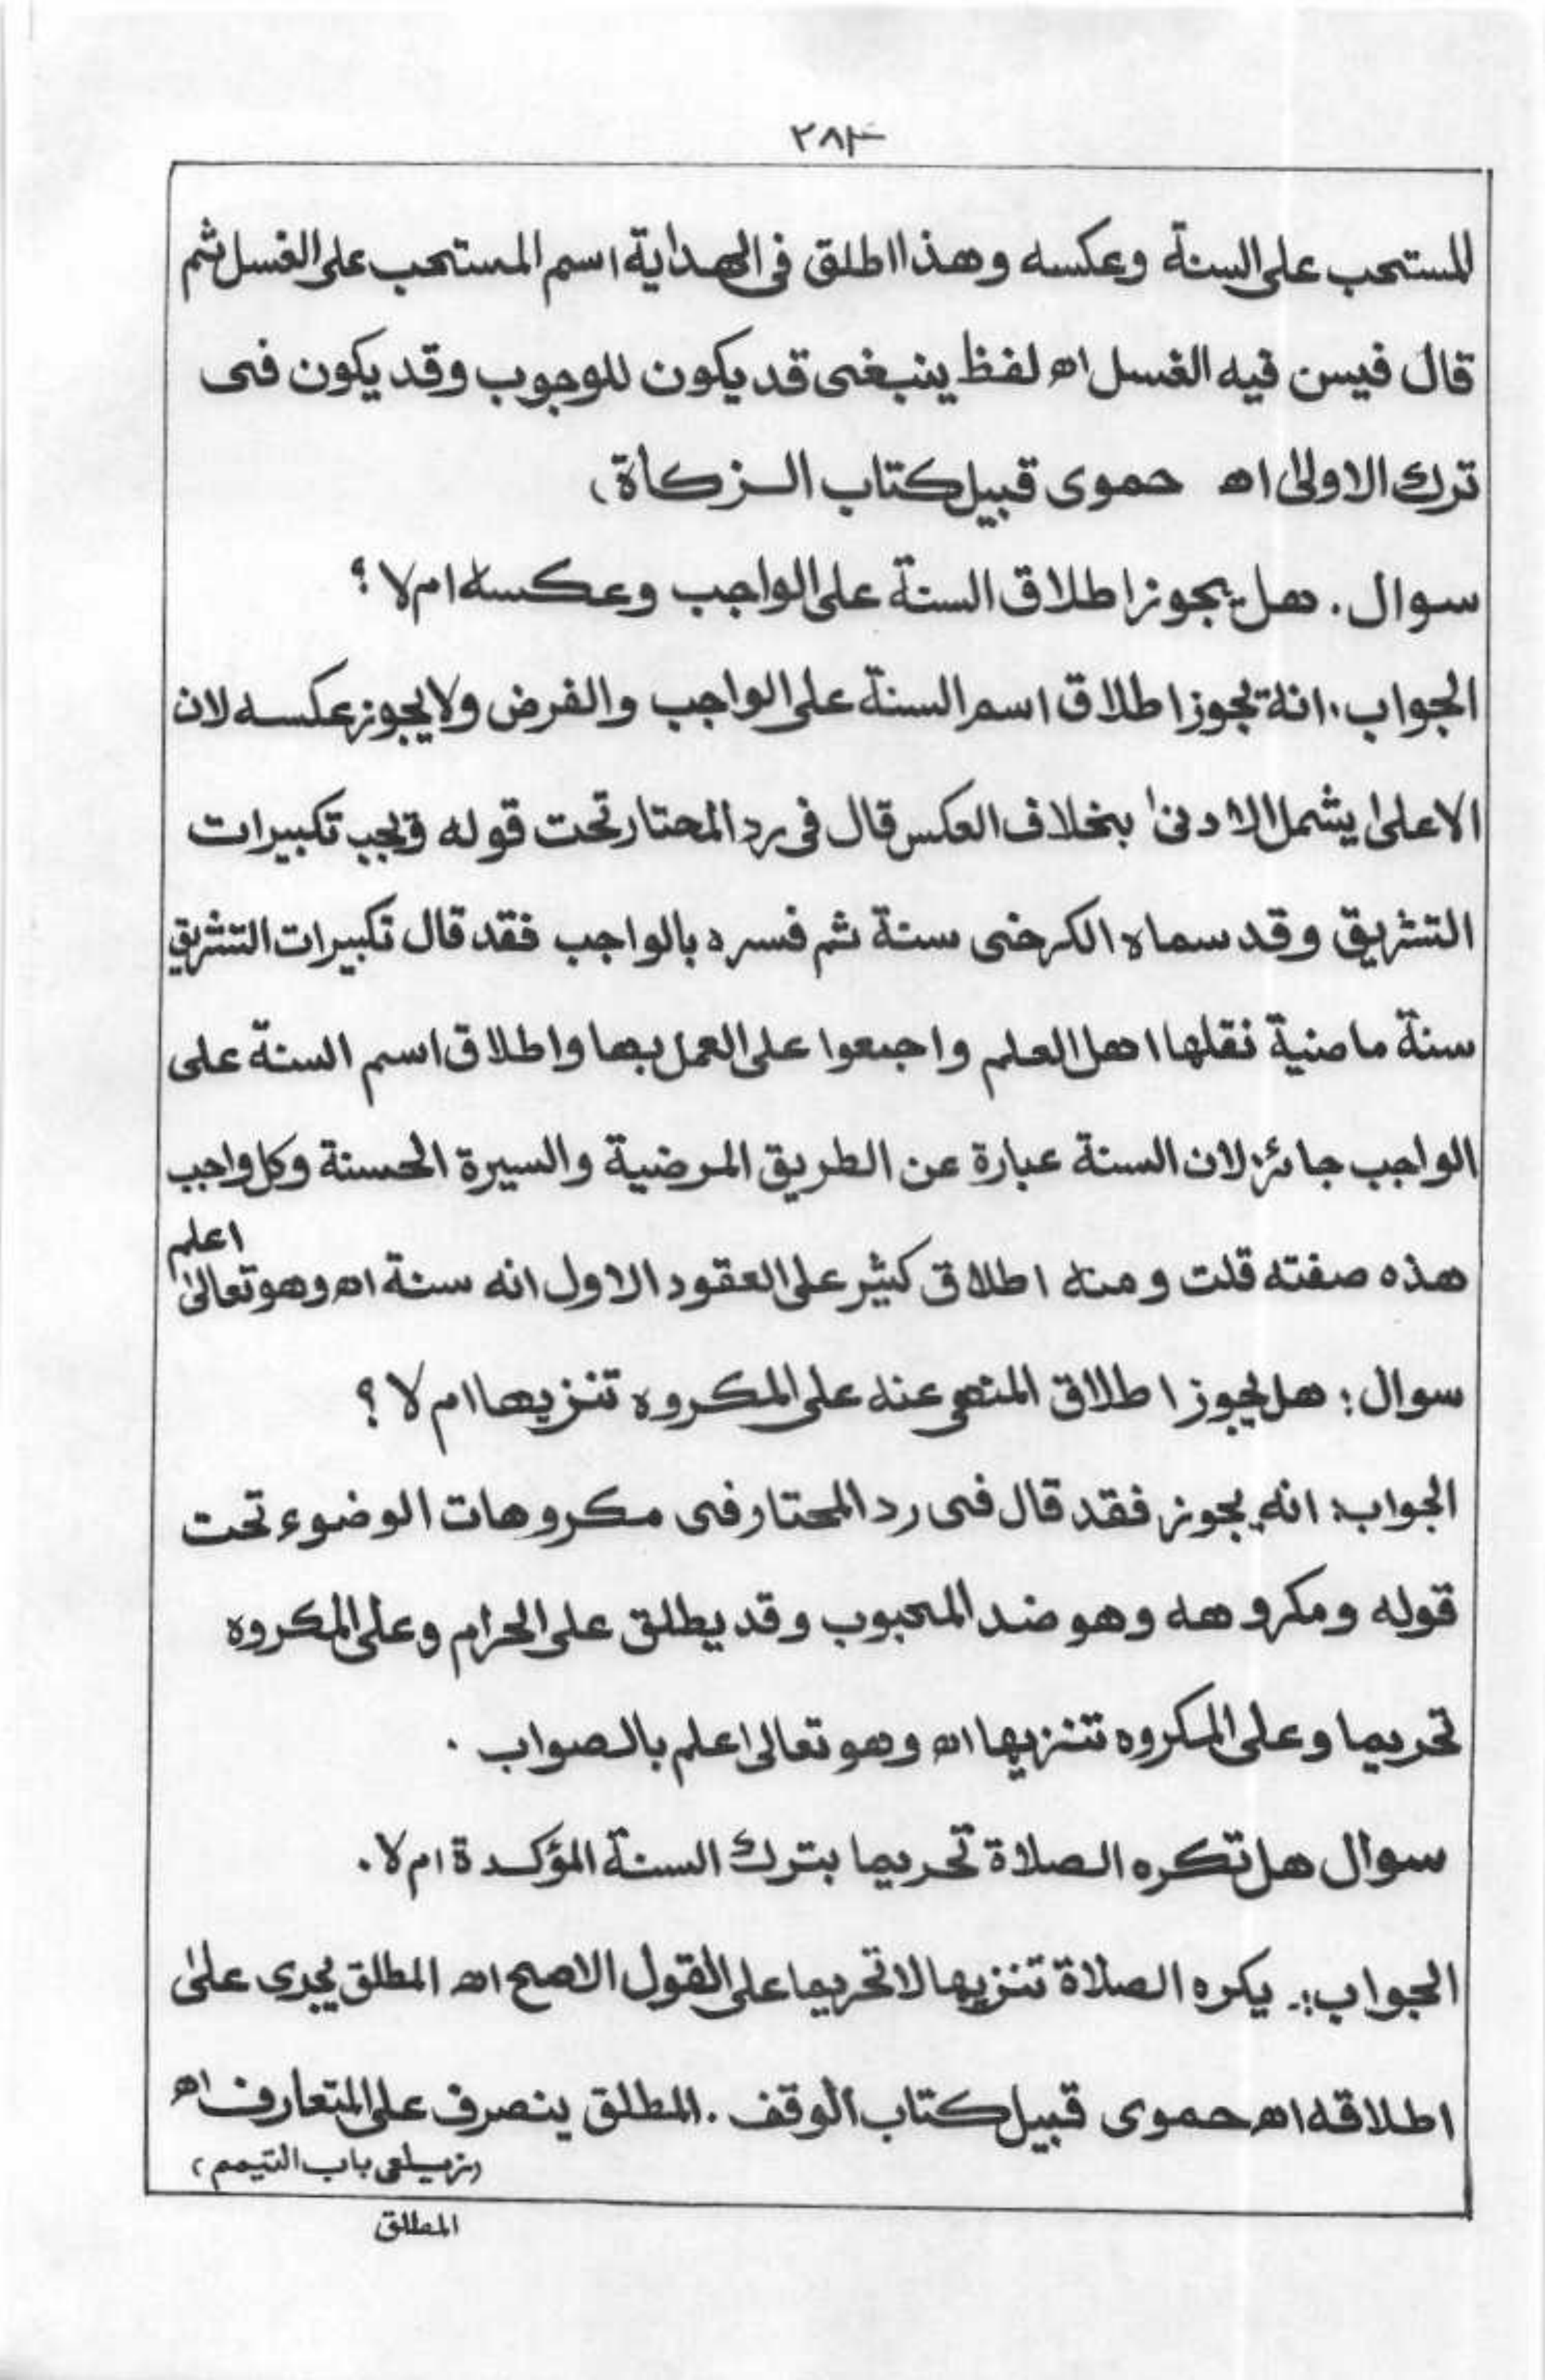 ٢٨٣
المستحب على السنة وعكسه وهذا اطلق فى الهداية اسم المستحب على الغسل ثم
قال فيسن فيه الغسل اھ لفظ ينبغى قد يكون للوجوب وقد يكون فى
ترك الاولىٰ اھ حموى قبيل كتاب الزكاة،
سوال. هل يجوز اطلاق السنة على الواجب وعكسه ام لا ؟
الجواب. انه يجوز اطلاق اسم السنة على الواجب والفرض ولا يجوز عكسه لان
الاعلىٰ يشمل الادنىٰ بخلاف العكس قال فى رد المحتار تحت قوله ويجب تكبيرات
التشريق وقد سماه الكرخى سنة ثم فسره بالواجب فقد قال تكبيرات التشريق
سنة ماضية نقلها اهل العلم واجمعوا على العمل بها واطلاق اسم السنة على
الواجب جائز لان السنة عبارة عن الطريق المرضية والسيرة الحسنة وكل واجب
هذه صفته قلت ومنه اطلاق كثير على العقود الاول انه سنة اھ وهو تعالىٰ اعلم
سوال: هل يجوز اطلاق المنهى عنه على المكروه تنزيها ام لا ؟
الجواب: انه يجوز فقد قال فى رد المحتار فى مكروهات الوضوء تحت
قوله ومكروهه وهو ضد المحبوب وقد يطلق على الحرام وعلى المكروه
تحريما وعلى المكروه تنزيها اھ وهو تعالى اعلم بالصواب .
سوال هل تكره الصلاة تحريما بترك السنة المؤكدة ام لا.
الجواب:۔ يكره الصلاة تنزيها لا تحريما على القول الاصح اھ المطلق يجرى علىٰ
اطلاقه اھ حموى قبيل كتاب الوقف. المطلق ينصرف على المتعارف اھ
(زيلعى باب التيمم)
المطلق